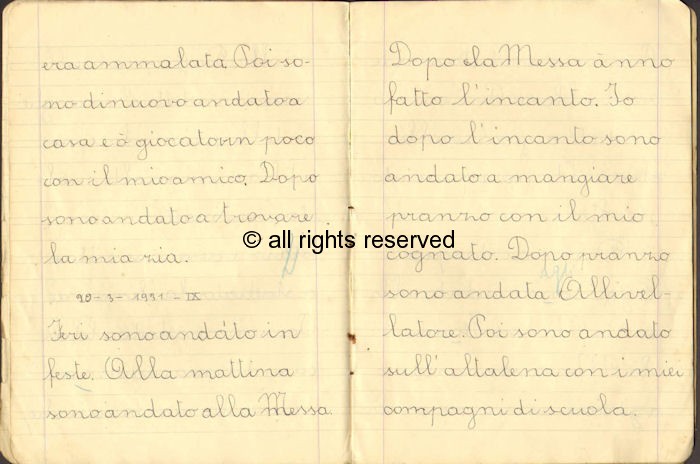 era ammalata. Poi so-
no di nuovo andato a
casa e ò giocato un poco
con il mio amico. Dopo
sono andato a trovare
la mia zia.
20-3-1931-IX
Ieri sono andato in
feste. Alla mattina
sono andato alla Messa.
Dopo la Messa ànno
fatto l'incanto. Io
dopo l'incanto sono
andato a mangiare
pranzo con il mio
cognato. Dopo pranzo
sono andata Allivel-
latore. Poi sono andato
sull'altalena con i miei
compagni di scuola.
© all rights reserved